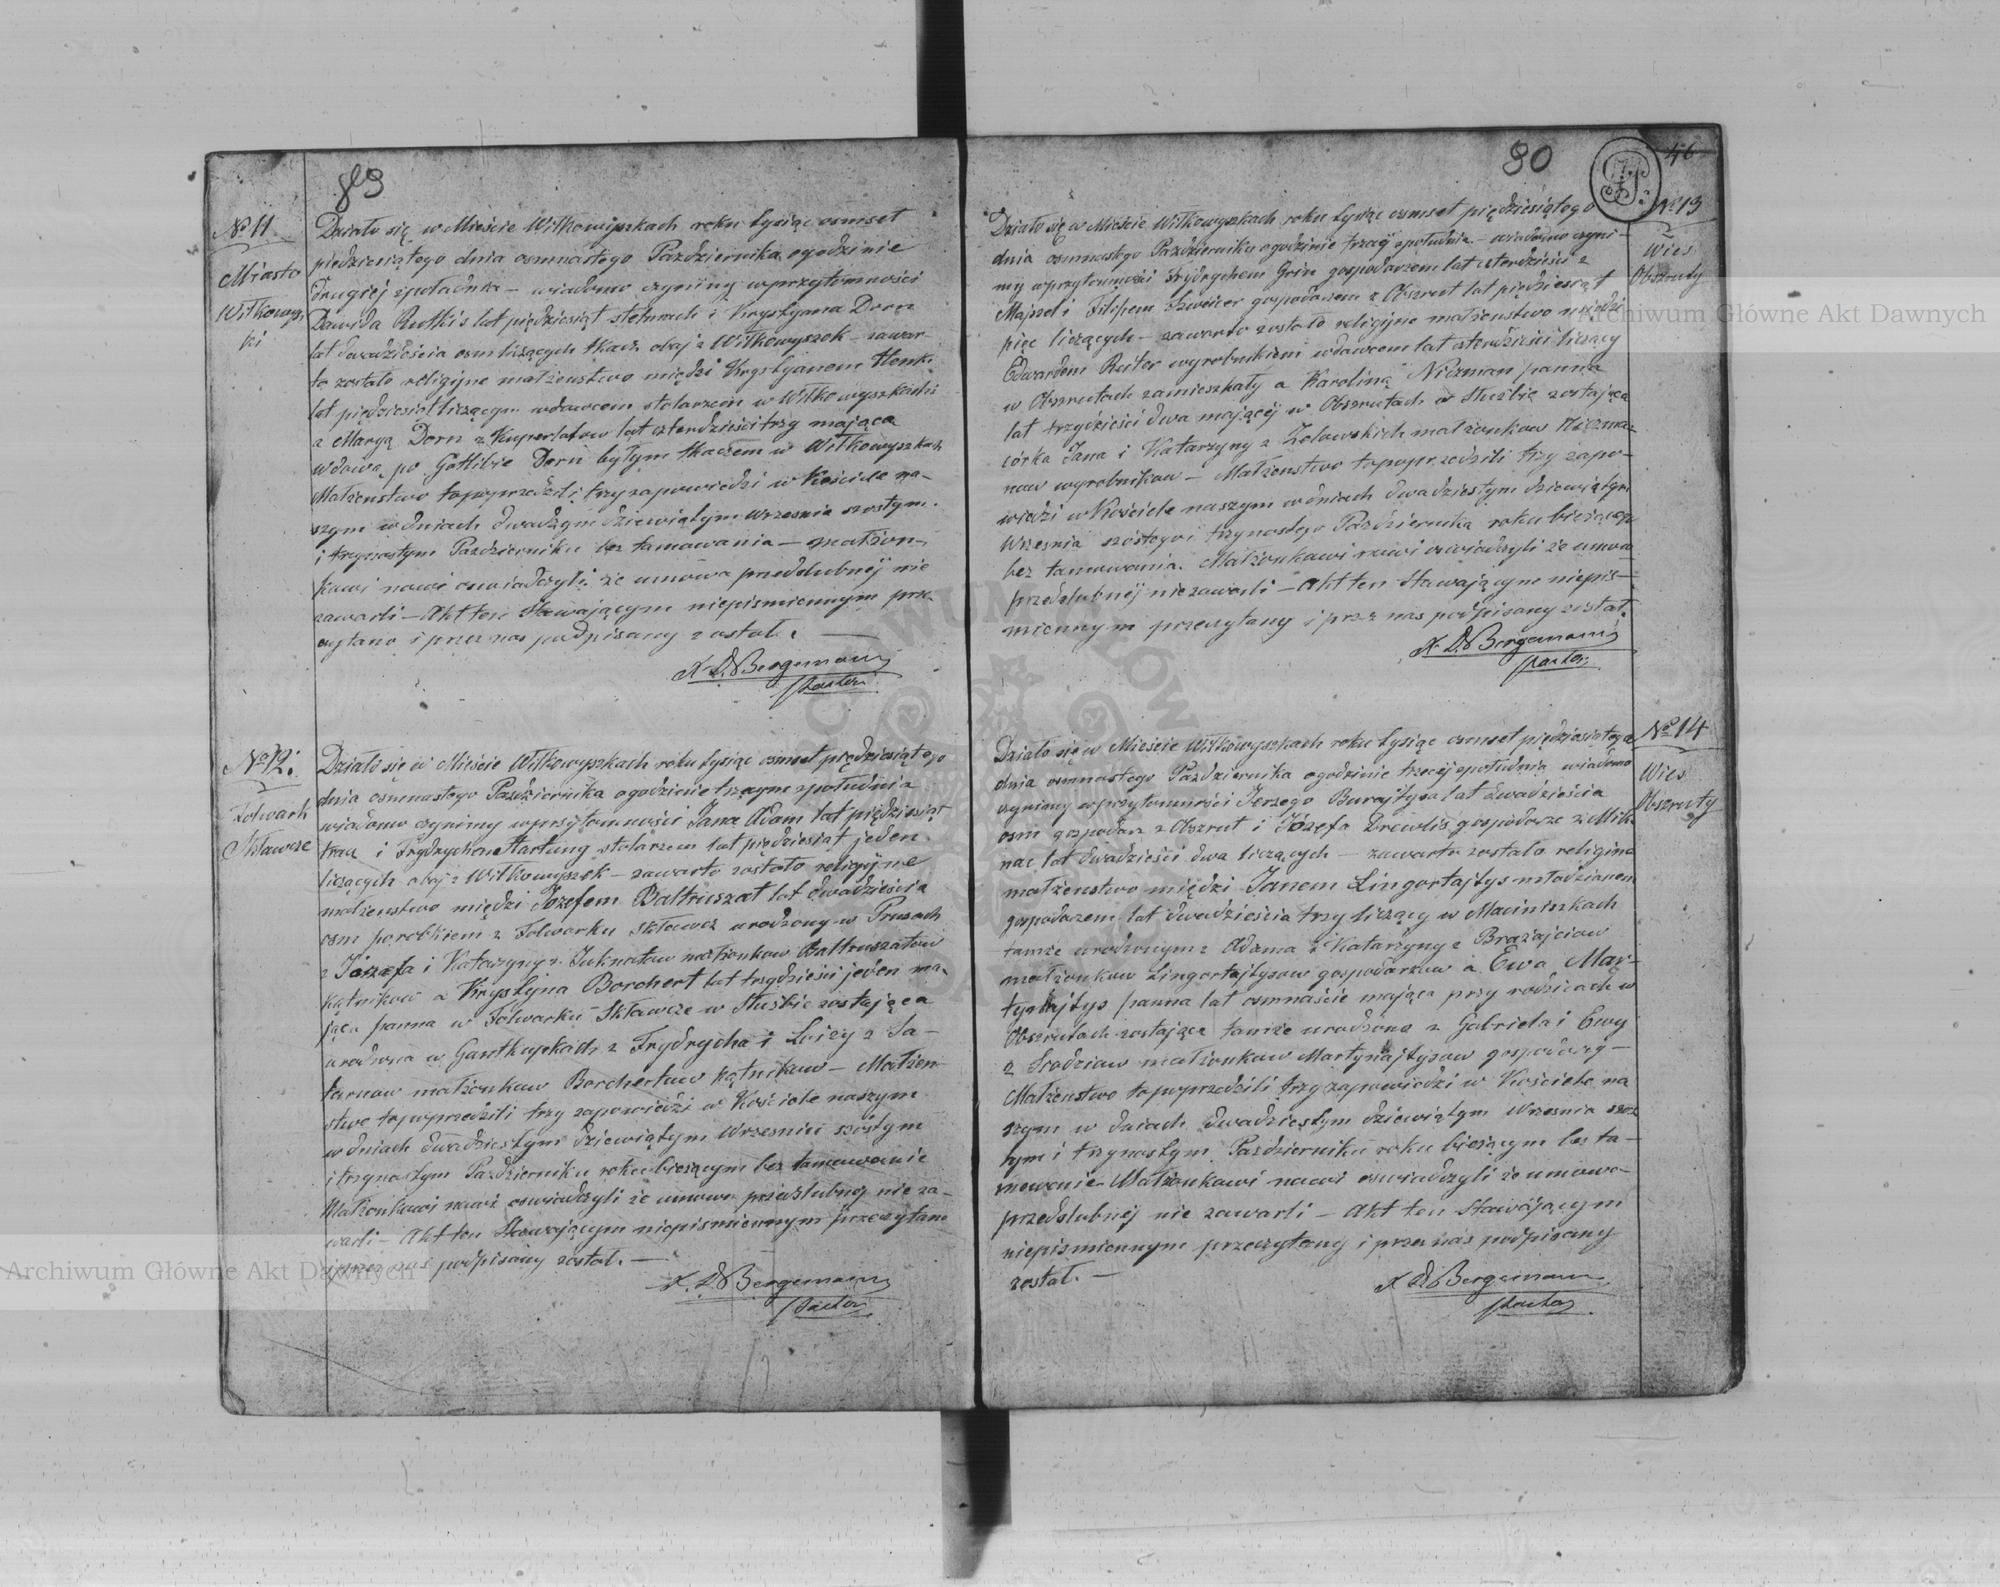 89
No 11
Miasto
Wiłkowysz
ki
Działo się w Mieście Wiłkowyszkach roku tysiąc osmset
piędziesiątego dnia osmnastego Pazdziernika ogodzinie
drugiej zpołudnia — wiadomo czyniny wprzytomności
Dawida lat piędziesiąt i Krystyana Dorn
lat dwadzieścia osm liczących tkacz obaj z Wiłkowyszek — zawar-
to zostało religijne małzenstwo między Krystyanem Henk
lat piędziesiąt liczącym wdowcem stolarzem w Wiłkowyszkach
a Maryą Dorn z lat czterdzieści trzy mająca
Wdowa po Gotlibie Dorn byłym tkaczem w Wiłkowyszkach
Małzenstwo topoprzedzili trzy zapowiedzi w Kościele na-
szym wdniach dziewiątym Wrzesnia szostym
i trzynastym Pazdzierniku bez tamowania — małzon-
kowi nowi oswiadczyli że umowa przedslubnéj nie
zawarli — Akt ten Stawającym niepismiennym prze-
czytano i przez nas podpisany został. —
X. D. Bergemann
Pastor
No 12.
Folwark
Skławcze
Działo się w Mieście Wiłkowyszkach roku tysiąc osmset piędziesiątego
dnia osmnastego Pazdziernika ogodzinie trzeciej zpołudnia
wiadomo czynimy wprzytomności Jana Adam lat piędziesiąt
tracz i Frydrychem Hartung stolarzem lat piędziesiąt jeden
liczących obaj z Wiłkowyszek — zawarto zostało religijne
małzenstwo między Józefem Baltruszat lat dwadzieścia
osm parobkiem z Folwarku Skławcz urodzony w Prusach
z Józefa i Katarzyny z małzonkow Baltruszatow
kątnikow a Krystyna Borchert lat trzydzieści jeden ma-
jąca panna w Folwarku Skławcze w służbie zostająca
urodzona w z Frydrycha i Luizy z Sa-
małzonkow Borchertow kątnikow — Małzen-
stwo topoprzedzili trzy zapowiedzi w Kościele naszym
w dniach dwadziestym dziewiątym Wrzesnia szostym
i trzynastym Pazdzierniku roku bieżącym bez tamowanie
Małzonkowi nowi oswiadczyli że umowa przedslubnéj nie za-
warli — Akt ten Stawającym niepismiennym przeczytano
i przez nas podpisany został. —
X. D. Bergemann
Pastor
90
46
No 13
Wies
Obszruty
Działo się w Mieście Wiłkowyszkach roku tysiąc osmset piędziesiątego
dnia osmnastego Pazdziernika ogodzinie trzeciéj zpołudnia — wiadomo czyni-
my wprzytomności Frydrychem Grin gospodarzem lat czterdzieści z
i Filipem Szweicer gospodarzem z Obszrut lat piędziesiąt
pięc liczących — zawarto zostało religijne małzenstwo między
Edwardem Reuter wyrobnikiem wdowcem lat czterdzieści liczący
w Obszrutach zamieszkały a Karoliną Niezman panna
lat trzydzieści dwa mającéj w Obszrutach w służbie zostająca
córka Jana i Katarzyny z małzonkow
now wyrobnikow — Małzenstwo topoprzedzili trzy zapo-
wiedzi w Kościele naszym wdniach dwadziestym dziewiątym
Wrzesnia szóstego i trzynastego Pazdziernika roku bieżącego
bez tamowania. Małzonkowi nowi oswiadczyli że umowa
przedslubnéj niezawarli — Akt ten Stawającym niepis-
miennym przeczytany i przez nas podpisany został.
X. D. Bergemann
Pastor
No 14
Wies
Obszruty
Działo się w Mieście Wiłkowyszkach roku tysiąc osmset piędziesiątego
dnia osmnastego Pazdziernika ogodzinie trzeciéj zpołudnia wiadomo
czynimy wprzytomności Jerzego lat dwadzieścia
osm gospodarz z Obszrut i Józefa Drewlis gospodarze z
lat dwadzieści dwa liczących — zawarto zostało religine
małzenstwo między Janem Lingortajtys młodzianem
gospodarzem lat dwadzieścia trzy liczący w Macininkach
tamże urodzonym z Adama i Katarzyny z Brazajciow
małzonkow Lingortajtysow gospodarzow a Ewa Mar-
tynajtys panna lat osmnaście mająca przy rodzicach w
Obszrutach zostająca tamże urodzona z Gabriela i Ewy
z małzonkow Martynajtysow gospodarzy —
Małzenstwo topoprzedzili trzy zapowiedzi w Kościele na
szym w dniach dwadziestym dziewiątym Wrzesnia szos
tym i trzynastym Pazdzierniku roku bieżącym bez ta-
mowanie Małzonkowi nowi oswiadczyli że umowa
przedslubnéj nie zawarli — Akt ten Stawającym
niepismiennym przeczytany i przez nas podpisany
został. —
X. D. Bergemann
Pastor
Archiwum Główne Akt Dawnych
Archiwum Główne Akt Dawnych